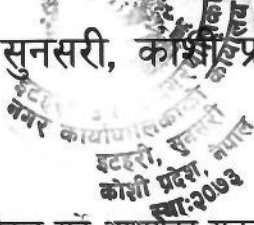 सुनसरी, कोशी प्र
नगर कार्यपालिकाको कार्यालय
इटहरी, सुनसरी
कोशी प्रदेश, नेपाल
स्था:२०७३